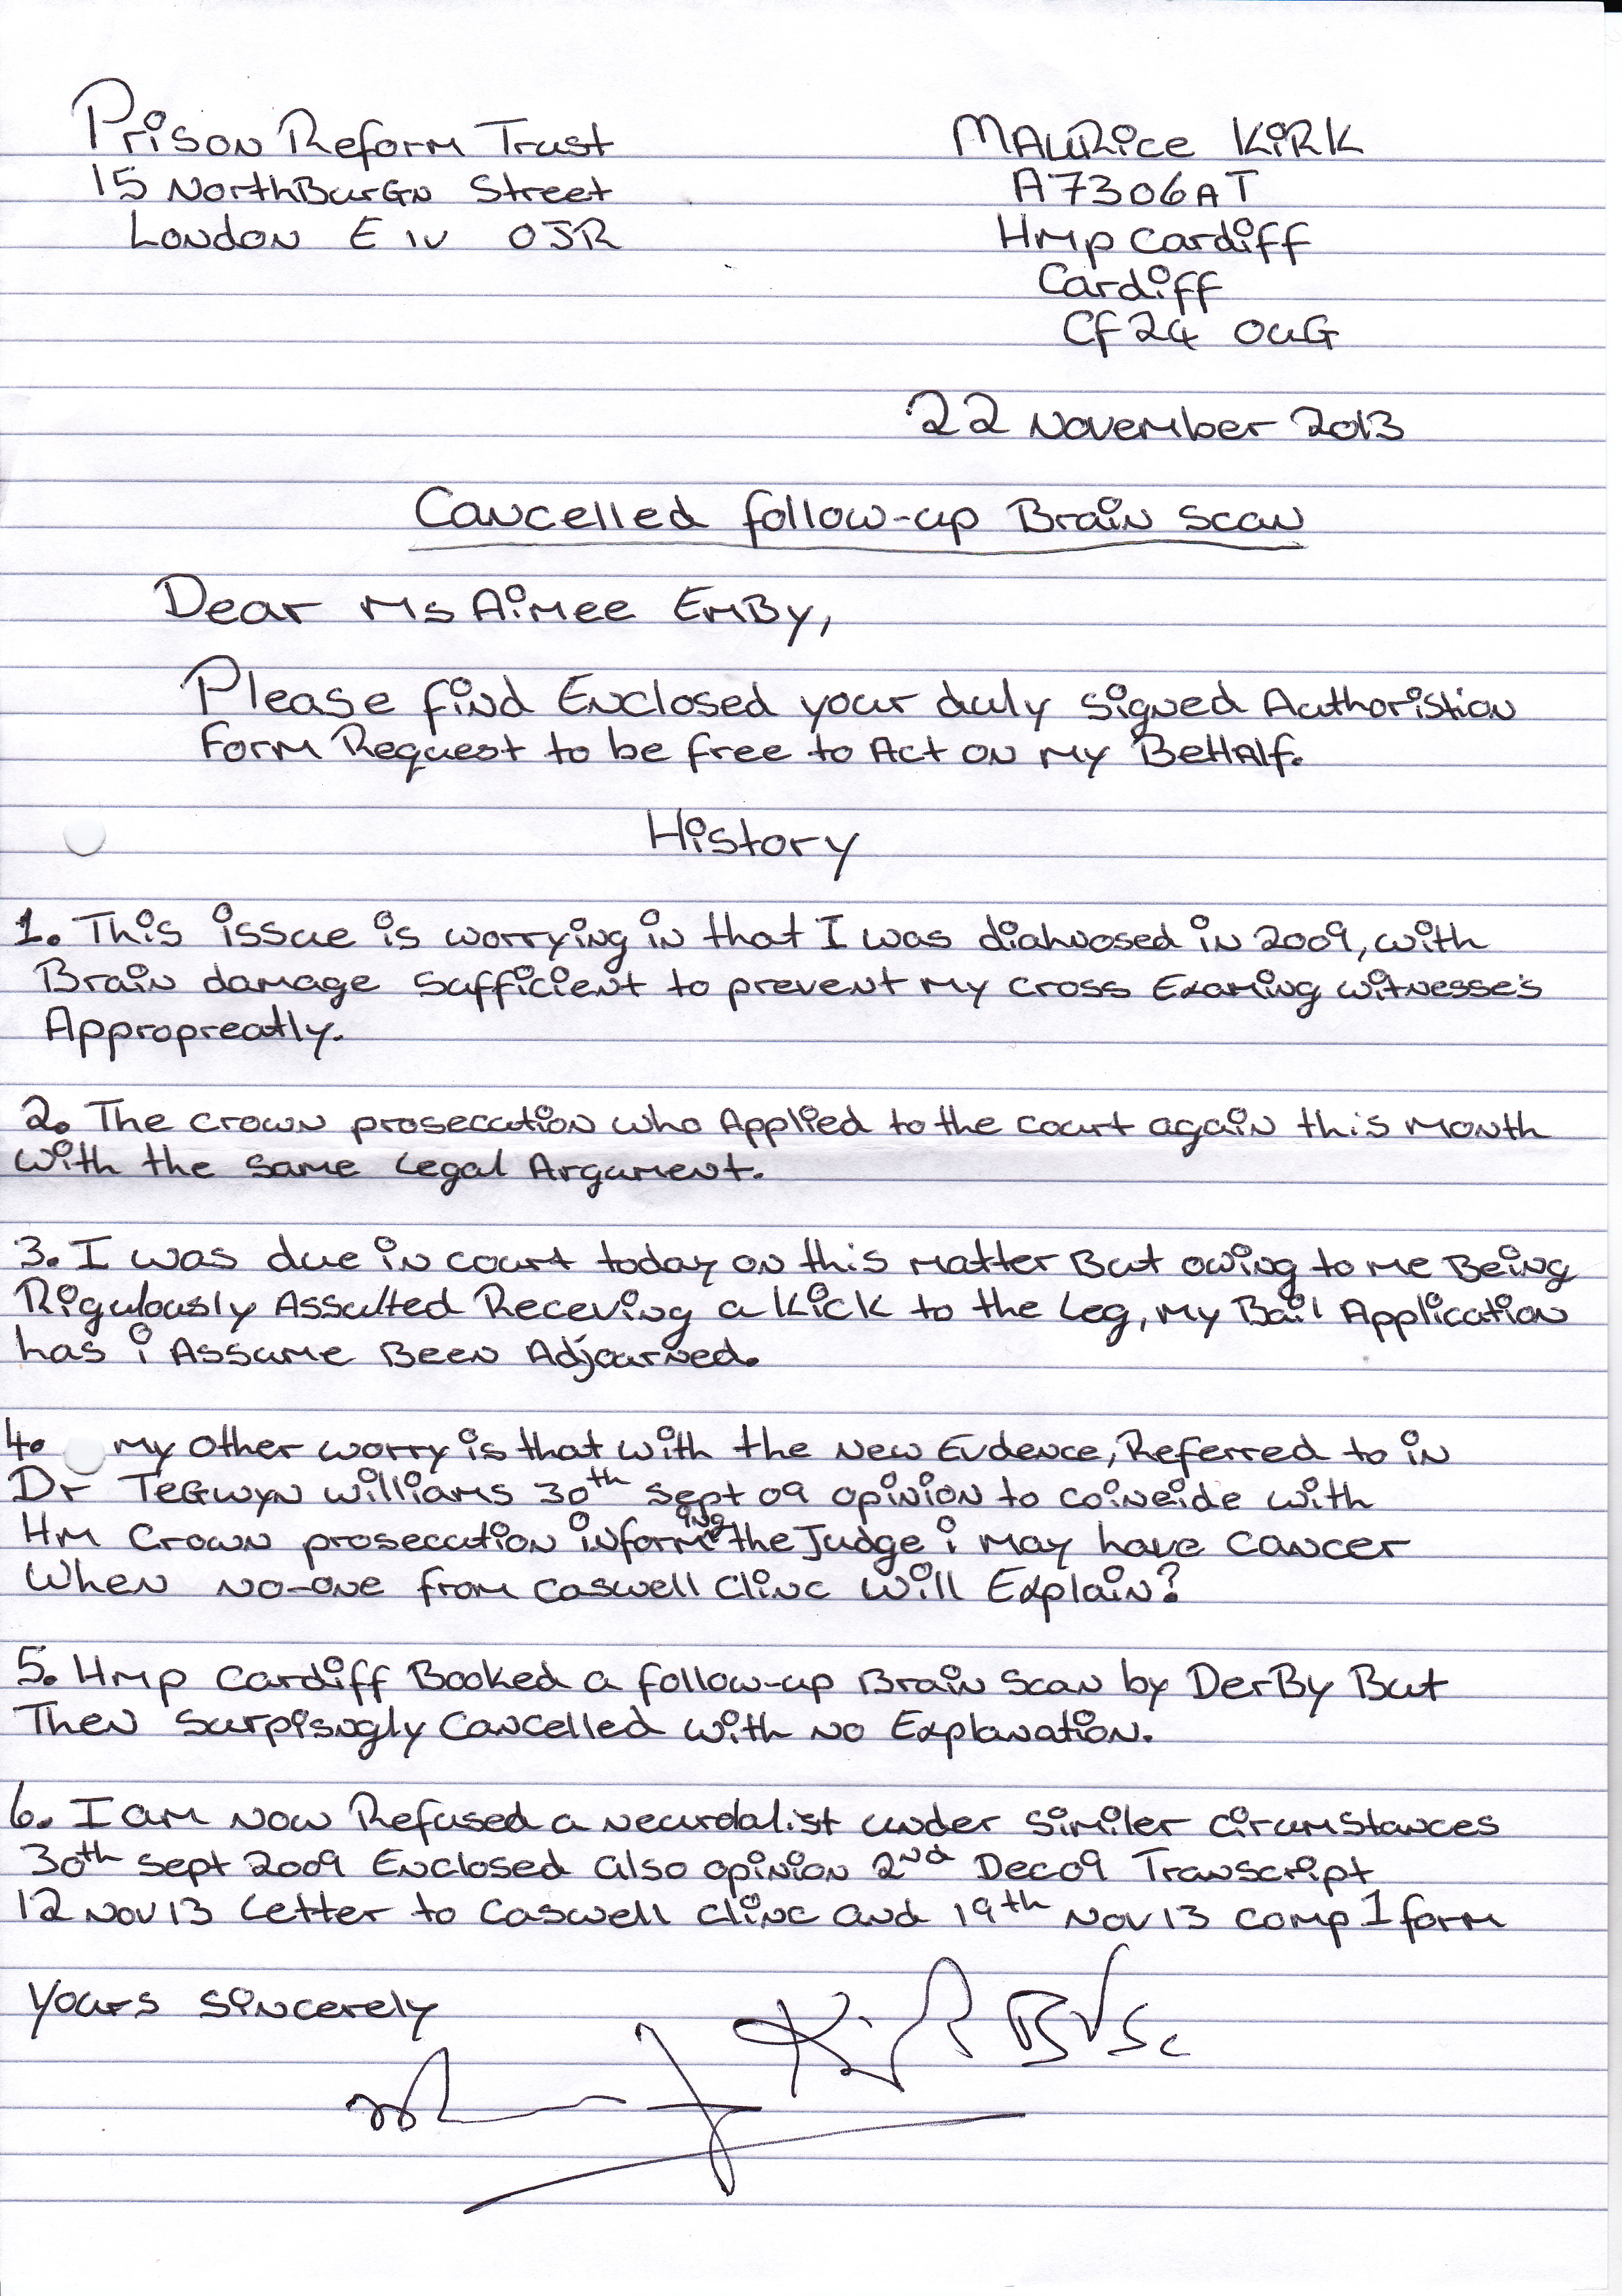 Prison Reform Trust
15 NorthBurGn Street
London E 1V 0JR
MAURice KiRK
A7306AT
Hmp Cardiff
Cardiff
CF24 0UG
22 November 2013
Cancelled follow-up Brain Scan
Dear Ms Aimee EmBy,
Please find Enclosed your duly signed Authoristion
Form Request to be free to Act on my BeHAlf.
History
1. This issue is worrying in that I was diahnosed in 2009, with
Brain damage sufficient to prevent my cross Examing witnesse's
Appropreatly.
2. The crown prosecution who Applied to the court again this month
with the same legal Argument.
3. I was due in court today on this matter But owing to me Being
Rigulously Assulted Receving a kick to the leg, my Bail Application
has i Assume Been Adjourned.
4. my other worry is that with the new Evdence, Referred to in
Dr TeGwyn williams 30th Sept 09 opinion to coineide with
Hm Crown prosecution informing the Judge i may have cancer
When no-one from Caswell Clinc will Explain?
5. Hmp Cardiff Booked a follow-up Brain Scan by DerBy But
Then Surpisngly Cancelled with no Explanation.
6. I am now Refused a neurdalist under similer cirumstances
30th Sept 2009 Enclosed also opinion 2nd Dec09 Transcript
12 Nov 13 Letter to Caswell Clinc and 19th Nov 13 comp 1 form
Yours sincerely
Kirk BVSc